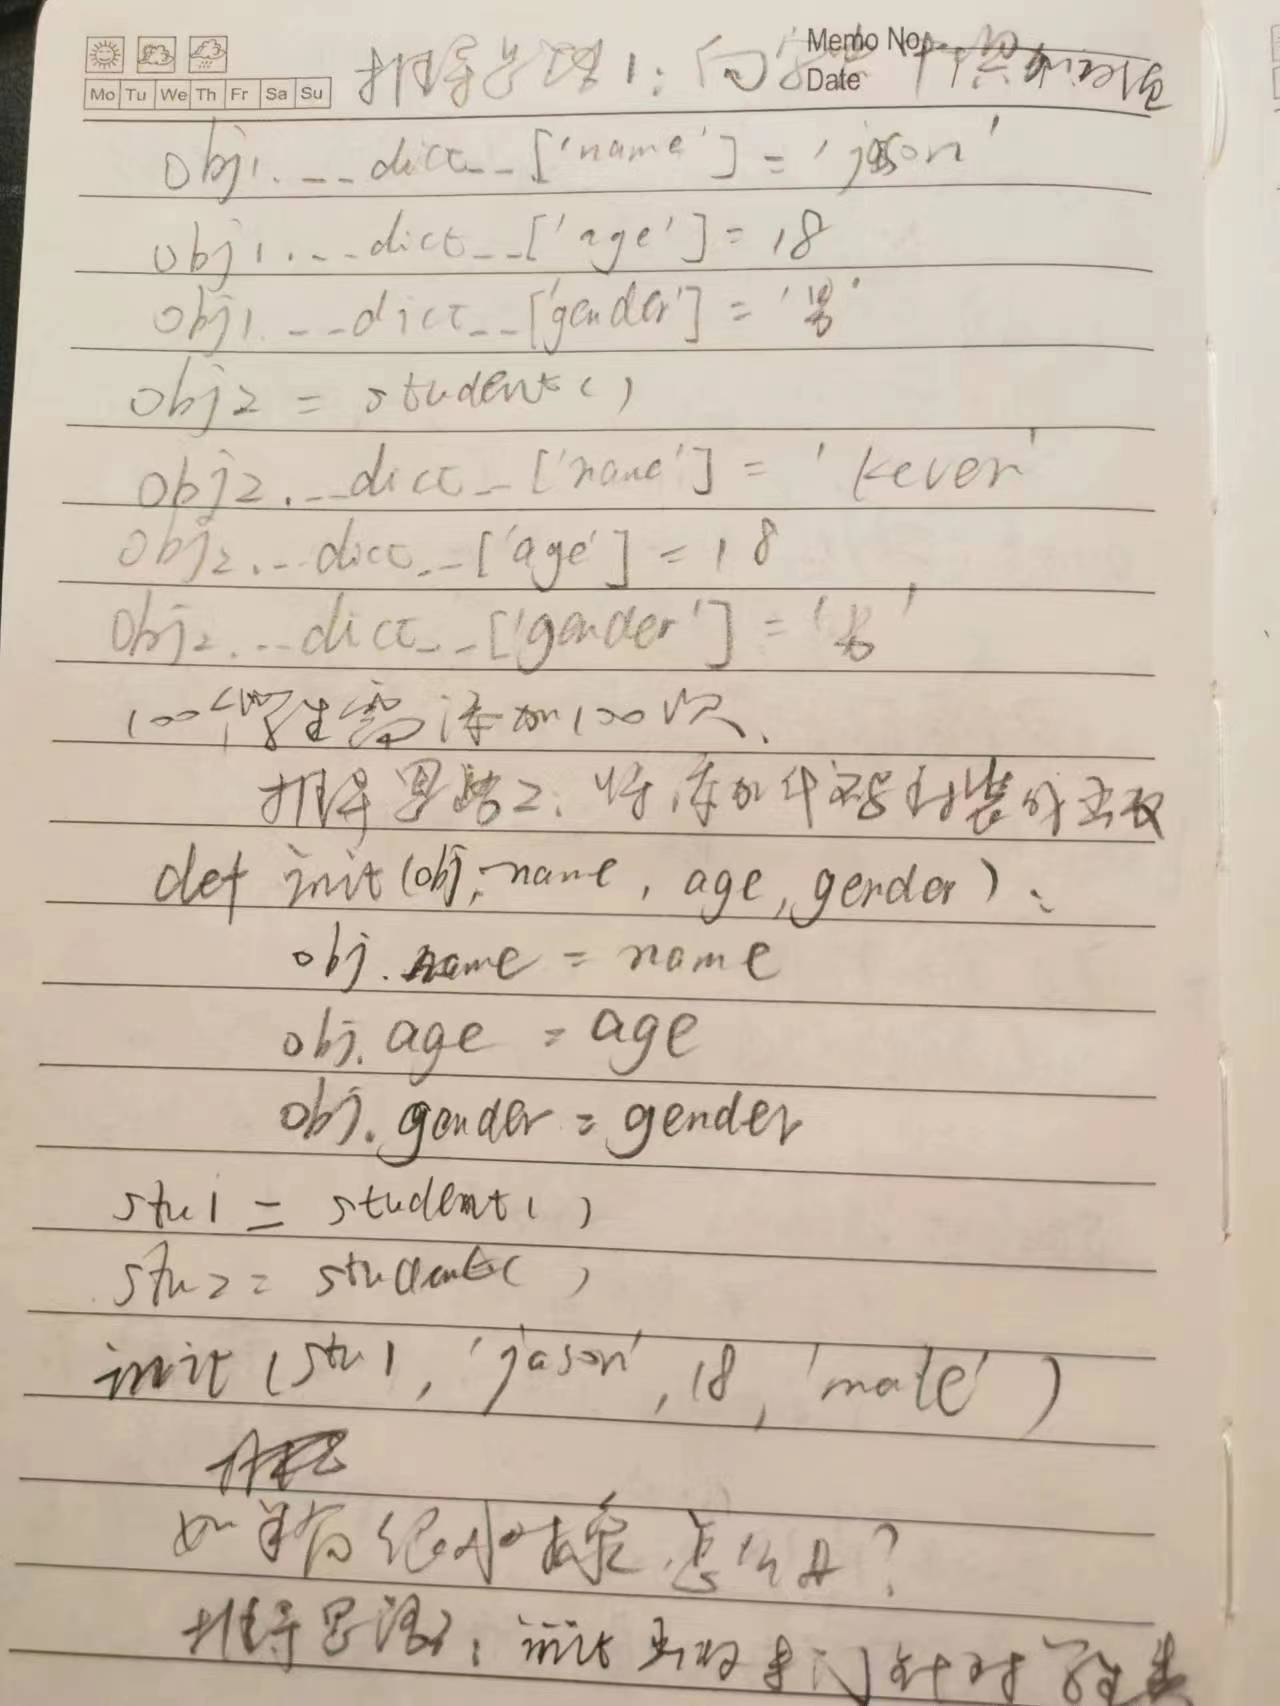 Memo No.
Date
Mo Tu We Th Fr Sa Su
推导思路1:向字典中添加
obj1.__dict__['name'] = 'jason'
obj1.__dict__['age'] = 18
obj1.__dict__['gender'] = '男'
obj2 = student()
obj2.__dict__['name'] = 'kever'
obj2.__dict__['age'] = 18
obj2.__dict__['gender'] = '男'
100个学生需添加100次.
推导思路2:将添加代码封装成函数
def init(obj, name, age, gender):
obj.name = name
obj.age = age
obj.gender = gender
stu1 = student()
stu2 = student()
init(stu1, 'jason', 18, 'male')
如果有很多对象怎么办?
推导思路3:init函数专门针对学生